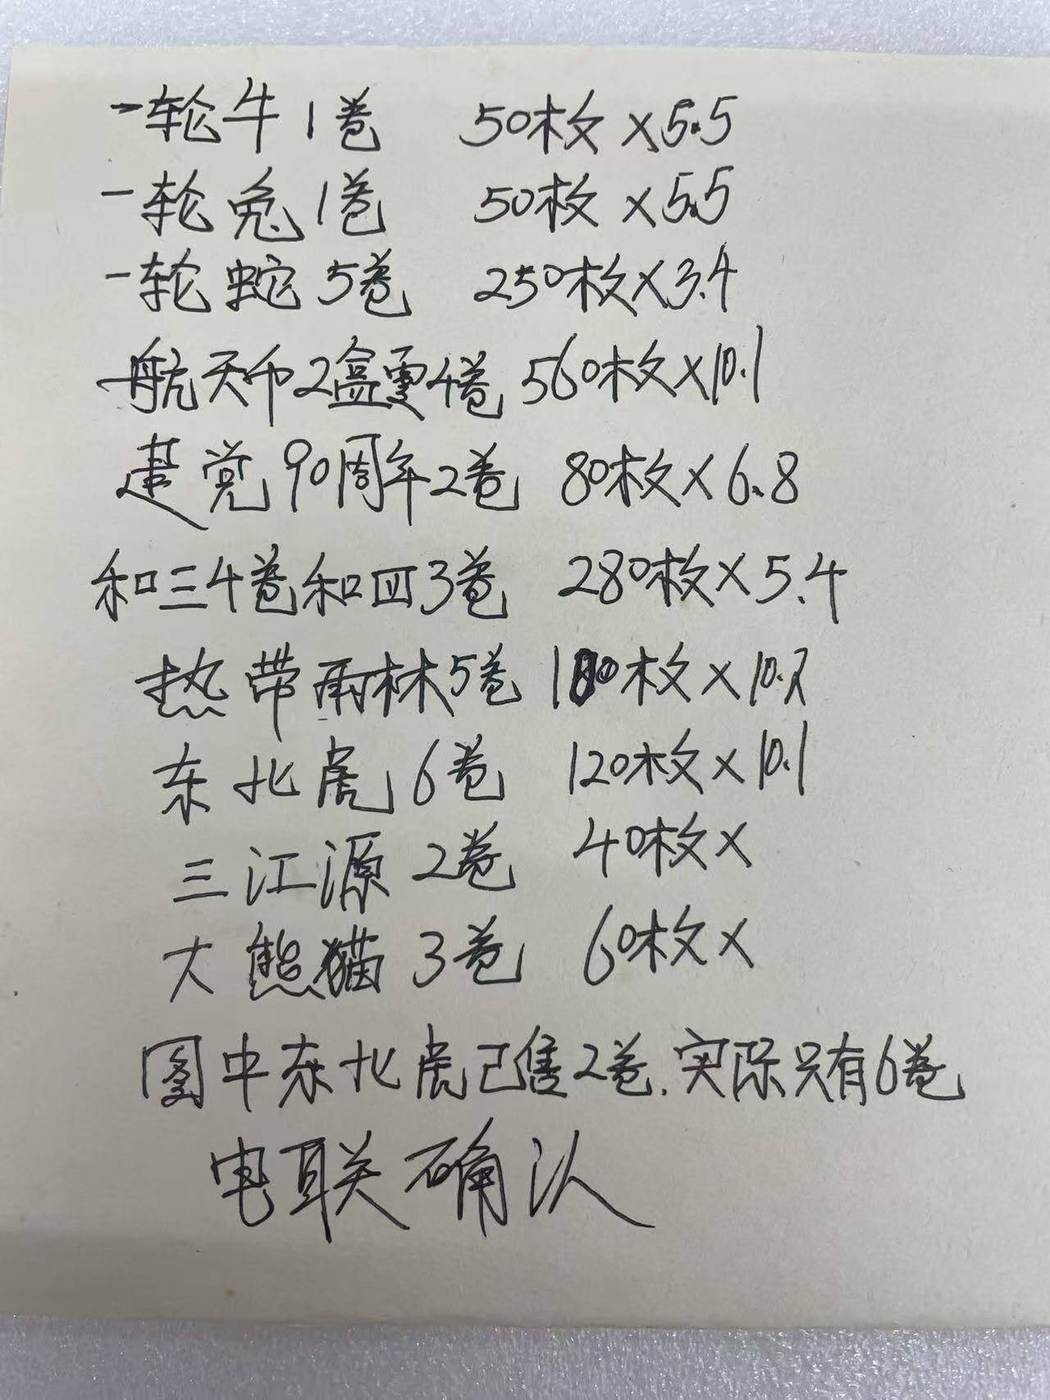 一轮牛1卷 50枚×5.5
一轮兔1卷 50枚×5.5
一轮蛇5卷 250枚×3.4
航天币2盒零4卷 560枚×10.1
建党90周年2卷 80枚×6.8
和三4卷和四3卷 280枚×5.4
热带雨林5卷 100枚×10.2
东北虎6卷 120枚×10.1
三江源2卷 40枚×
大熊猫3卷 60枚×
图中东北虎已售2卷.实际只有6卷
电联关确认